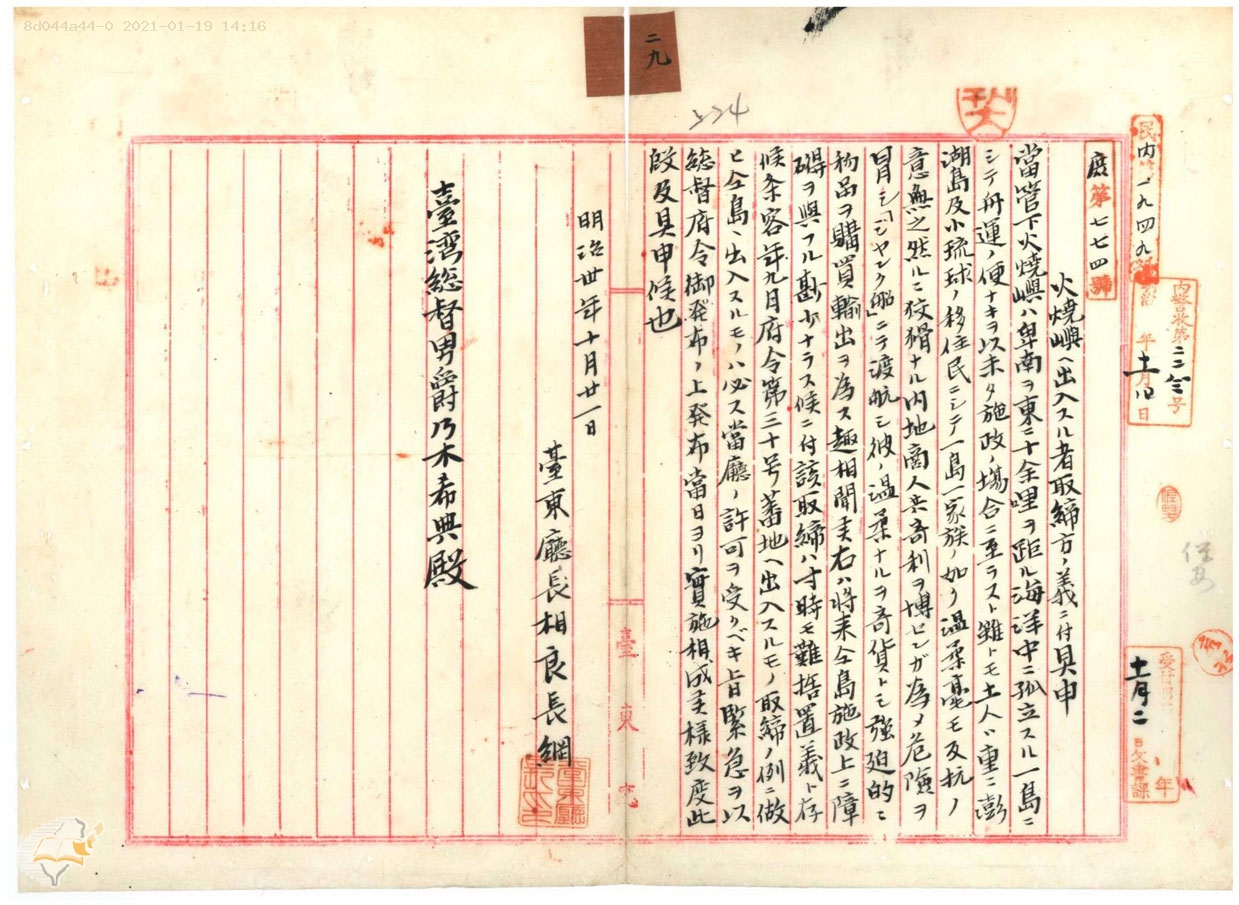 8d044a44-0 2021-01-19 14:16
二九
民内一九四九
庶第七七四號
火燒嶼ヘ出入スル者取締方ノ義ニ付具申
當管下火燒嶼ハ卑南ヲ東ニ十余哩ヲ距ル海洋中ニ孤立スル一島ニ
シテ舟運ノ便ナキヲ以未タ施政ノ場合ニ至ラスト雖トモ土人ハ重ニ澎
湖島及小琉球ノ移住民ニシテ一島一家族ノ如ク温柔毫モ反抗ノ
意無之然ルニ狡猾ナル内地商人共奇利ヲ博センガ為メ危險ヲ
冒シ「ジヤンク船」ニテ渡航シ彼ノ温柔ナルヲ奇貨トシ強迫的ニ
物品ヲ購買輸出ヲ為ス趣相聞ヱ右ハ将来仝島施政上ニ障
碍ヲ與フル尠少ナラス候ニ付該取締ハ寸時モ難捨置義ト存
候条客年九月府令第三十号蕃地ヘ出入スルモノ取締ノ例ニ倣
ヒ仝島ヘ出入スルモノハ必ス當廳ノ許可ヲ受クベキ旨緊急ヲ以
総督府令御発布ノ上発布當日ヨリ實施相成ヱ様致度此
段及具申候也
明治卅年十月廿一日
臺東廳長相良長綱
臺灣総督男爵乃木希典殿
臺東